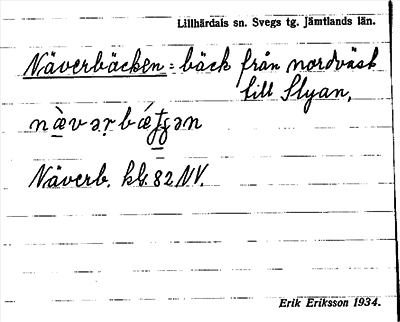 Lillhärdals sn. Svegs tg. Jämtlands län.
Näverbäcken = bäck från nordväst
till Slyan,
nä̀vər̥bǽʈʂən
Näverb. kb. 82 NV.
Erik Eriksson 1934.